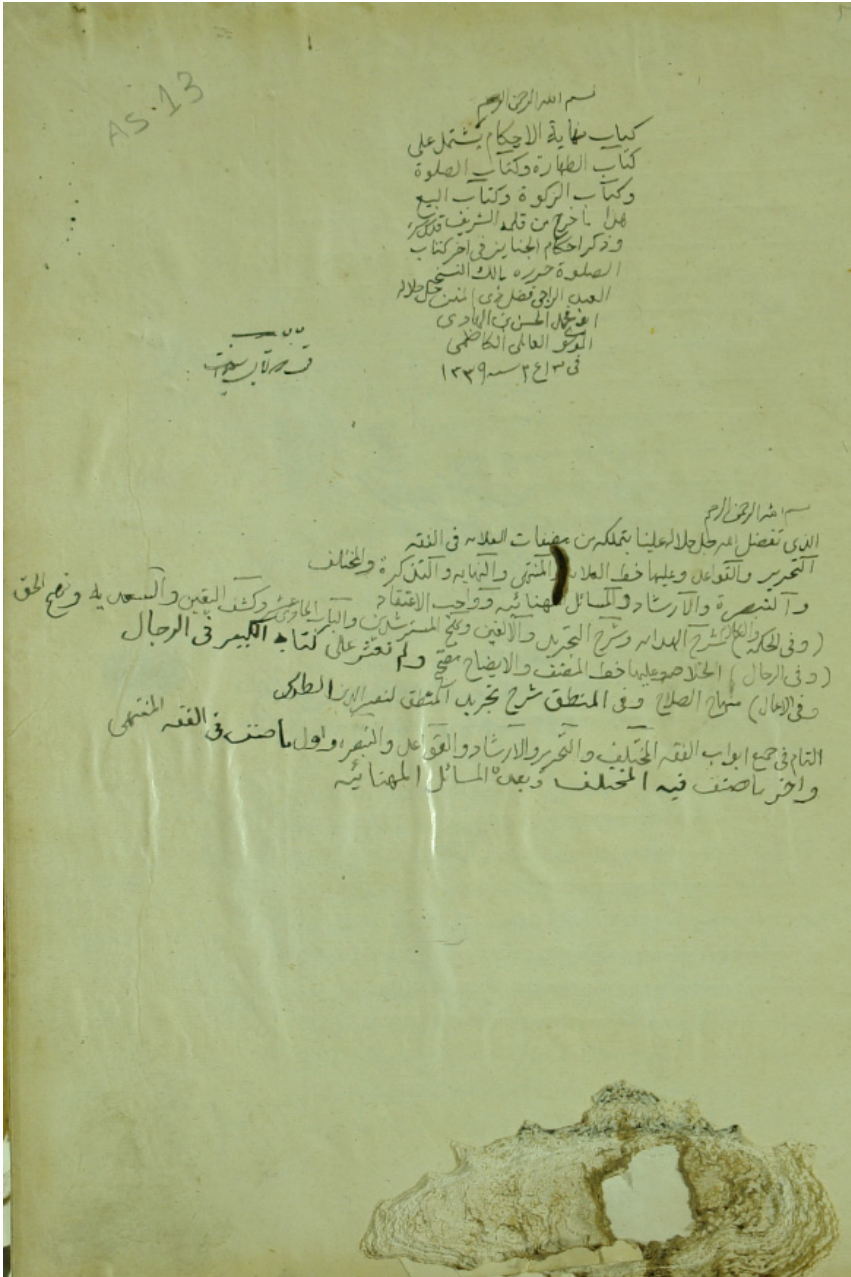 AS.13
بسم الله الرحمن الرحيم
كتاب نهاية الاحكام يشتمل على
كتاب الطهارة وكتاب الصلوة
وكتاب الزكوة وكتاب البيع
هذا ما خرج من قلمه الشريف قدس سره
وذكر احكام الجنايز في اخر كتاب
الصلوة حرره مالك النسخه
العبد الراجي فضل ذي المنن جل جلاله
ابو محمد الحسن بن الهادي
الموسوي العاملي الكاظمي
في ١٣ ع ٢ سنه ١٣٣٩
بسم الله الرحمن الرحيم
الذي تفضل الله جل جلاله علينا بتملكه من مصنفات العلامه في الفقه
التحرير والقواعد وعليها خط العلامه والمنتهى والنهايه والتذكرة والمختلف
والتبصرة والارشاد والمسائل المهنائيه وواجب الاعتقاد
(وفي الحكمة والكلام) شرح الهدايه وشرح التجريد والالفين ونهج المسترشدين والباب الحادي عشر وكشف اليقين والسعديه ونهج الحق
(وفي الرجال) الخلاصه وعليها خط المصنف والايضاح ولم نعثر على كتابه الكبير في الرجال
(وفي الاعمال) منهاج الصلاح وفي المنطق شرح تجريد المنطق لنصير الدين الطوسي
التام في جميع ابواب الفقه المختلف والتحرير والارشاد والقواعد والتبصره واول ما صنف في الفقه المنتهى
واخر ما صنف فيه المختلف وبعده المسائل المهنائيه